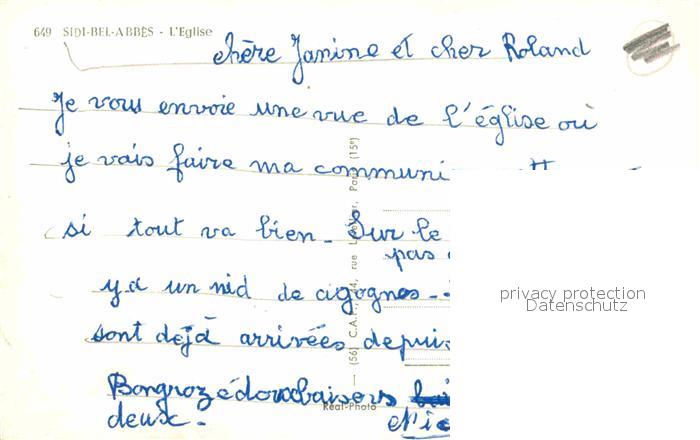 649 SIDI-BEL-ABBÈS - L'Eglise
chère Janine et cher Roland
Je vous envoie une vue de l'église où
je vais faire ma communi
si tout va bien. Sur le
pas
y a un nid de cigognes -
sont dejà arrivées depuis
Bongroz édoux baisers
deux.
Réal-Photo
privacy protection
Datenschutz